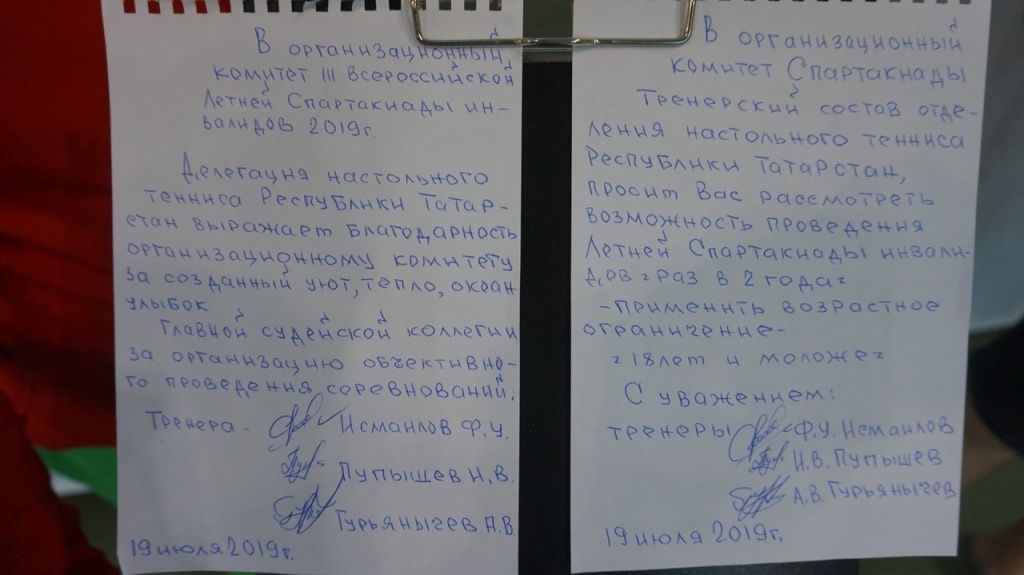 В организационный
комитет III Всероссийской
Летней Спартакиады ин-
валидов 2019г.
Делегация настольного
тенниса Республики Татар-
стан выражает благодарность
организационному комитету
за созданный уют, тепло, океан
улыбок
Главной судейской коллегии
за организацию объективно-
го проведения соревнований.
Тренера - Исмаилов Ф.У.
Пупышев И.В.
Гурьянычев А.В
19 июля 2019г.
В организационный
комитет Спартакиады
Тренерский состав отде-
ления настольного тенниса
Республики Татарстан,
просит Вас рассмотреть
возможность проведения
Летней Спартакиады инвали-
дов "раз в 2 года"
-применить возрастное
ограничение-
"18 лет и моложе"
С уважением:
тренеры Ф.У. Исмаилов
И.В. Пупышев
А.В. Гурьянычев
19 июля 2019г.